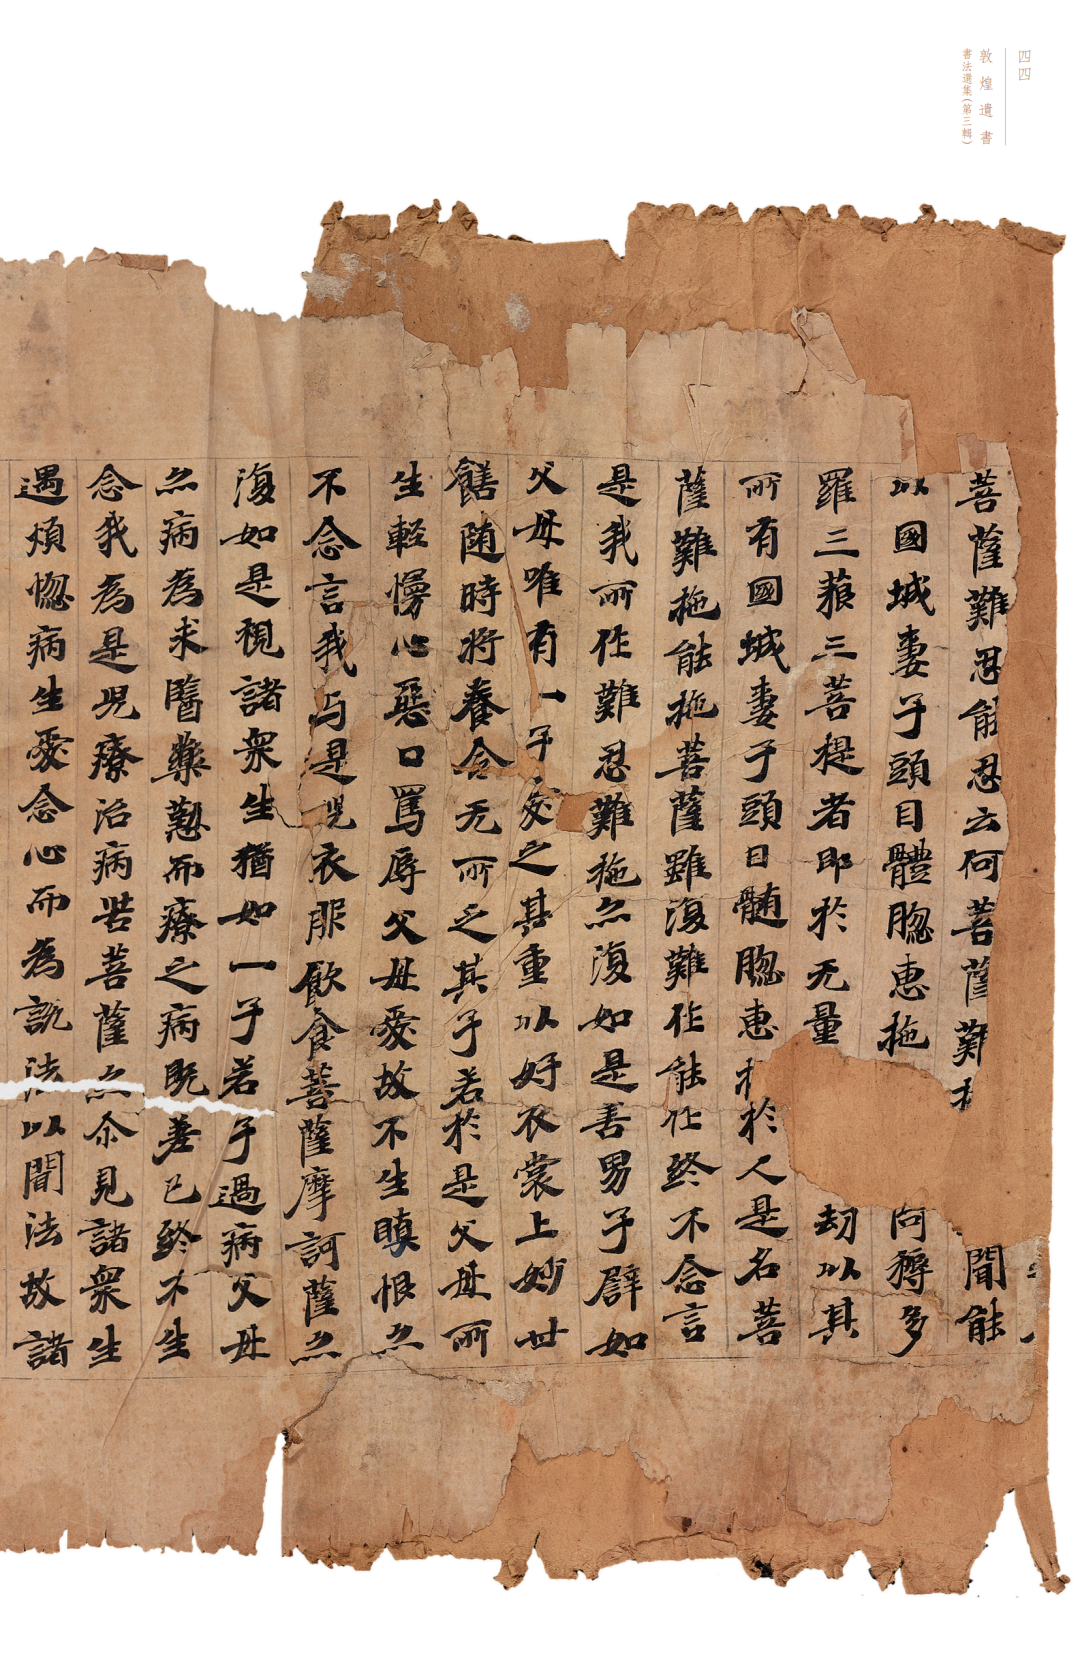 四四
敦煌遺書
書法選集(第三輯)
菩薩難忍能忍云何菩薩難 聞能
以國城妻子頭目體𦛁惠施 何獲多
羅三藐三菩提者即於无量 劫以其
所有國城妻子頭目髓𦛁惠 於人是名菩
薩難施能施菩薩雖復難作能作終不念言
是我所作難忍難施亦復如是善男子譬如
父母唯有一子愛之甚重以好衣裳上妙甘
饍随時將養令无所乏其子若於是父母所
生輕慢心惡口罵辱父母愛故不生瞋恨亦
不念言我与是兒衣服飲食菩薩摩訶薩亦
復如是視諸衆生猶如一子若子遇病父母
亦病為求醫藥懃而療之病既差已終不生
念我為是兒療治病苦菩薩亦尒見諸衆生
遇煩惚病生愛念心而為説法以聞法故諸